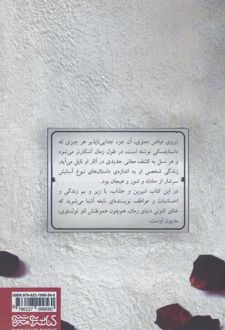 نیروی فیاض معنوی، آن جزء جدایی‌ناپذیر هر چیزی که
داستایفسکی نوشته است، در طول زمان آشکارتر می‌شود
و هر نسل به کشف معانی جدیدی در آثار او نایل می‌آید.
زندگی شخصی او به اندازه‌ی داستان‌های نبوغ آسایش
سرشار از حادثه و شور و هیجان بود.
در این کتاب شیرین و جذاب، با زیر و بم زندگی و
احساسات و عواطف نویسنده‌ی نابغه آشنا می‌شوید که
غنای کنونی دنیای رمان، هم‌چون هموطنش لئو تولستوی،
مدیون اوست.